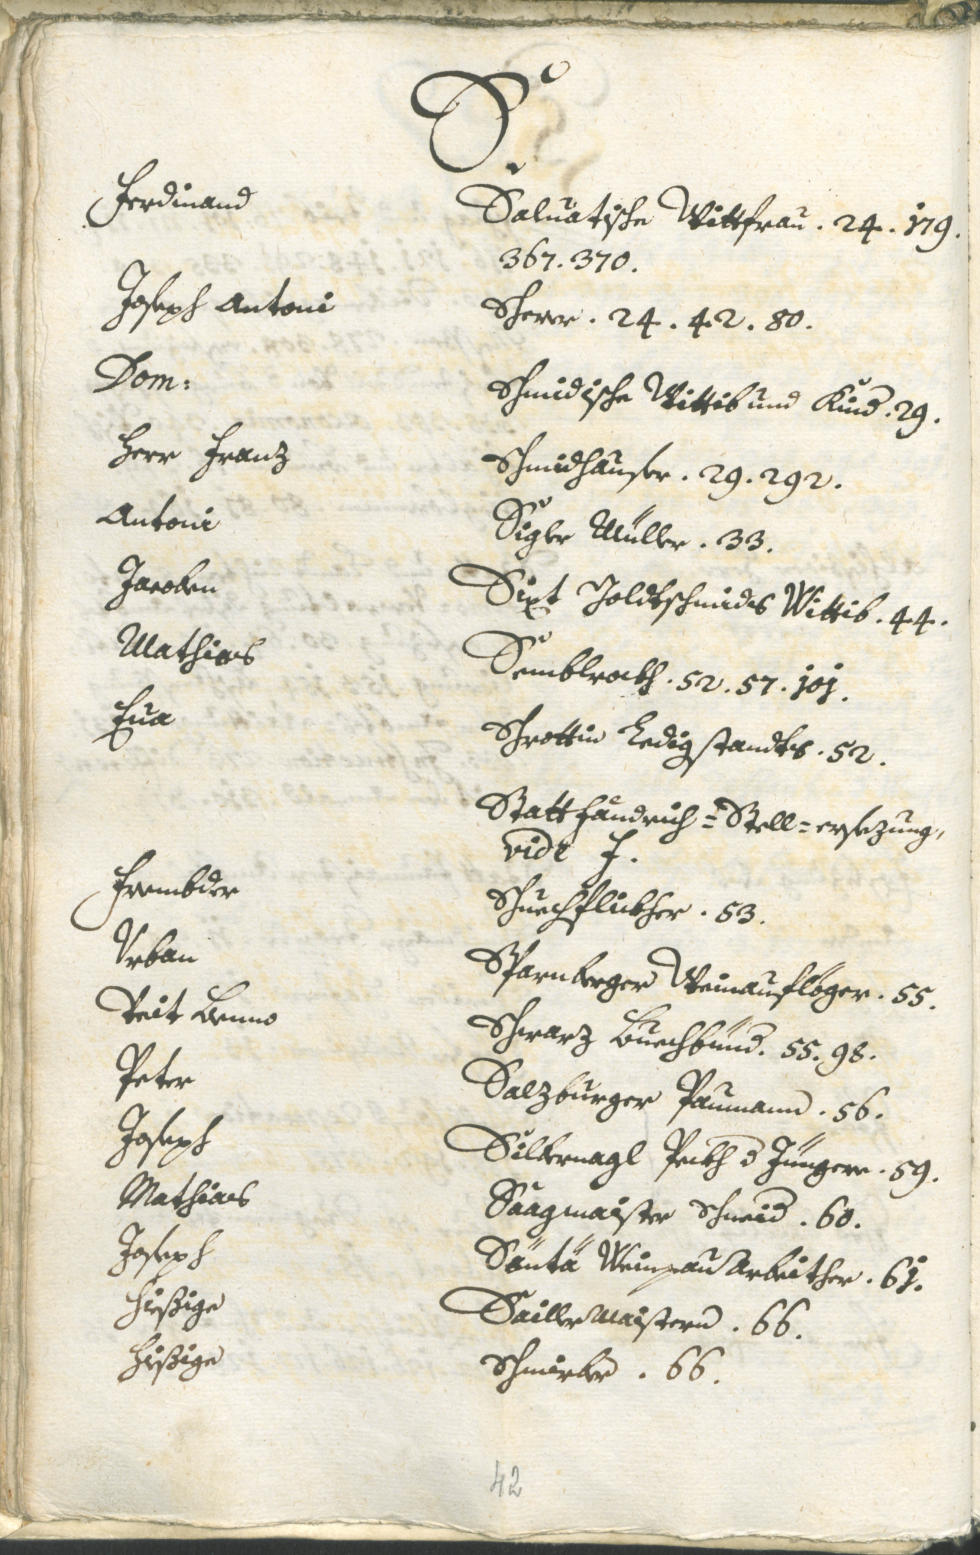 S.
Ferdinand Saluatische Wittfrau . 24 . 179 .
367 . 370 .
Joseph Antoni Scherer . 24 . 42 . 80 .
Dom: Schmidische Wittib und Kind . 29 .
Herr Franz Schmidhauser . 29 . 292 .
Antoni Sigler Müller . 33 .
Jacoben Sixt Goldtschmids Wittib . 44 .
Mathias Semblrockh . 52 . 57 . 101 .
Eua Schrottin Ledig standts . 52 .
Statt Fändrich = Stell = ersezung,
vide F .
Frembder Schuechflickher . 53 .
Vrban Sparnberger Weinaufleger . 55 .
Veit Benno Schwarz Buechbind . 55 . 98 .
Peter Salzburger Paumann . 56 .
Joseph Silbernagl Peckh d Jüngere . 59 .
Mathias Saagmaister Schneid . 60 .
Joseph Säntä Weinpau Arbeither . 61 .
Hießige Sailler Maistern . 66 .
Hießige . 66 .
42